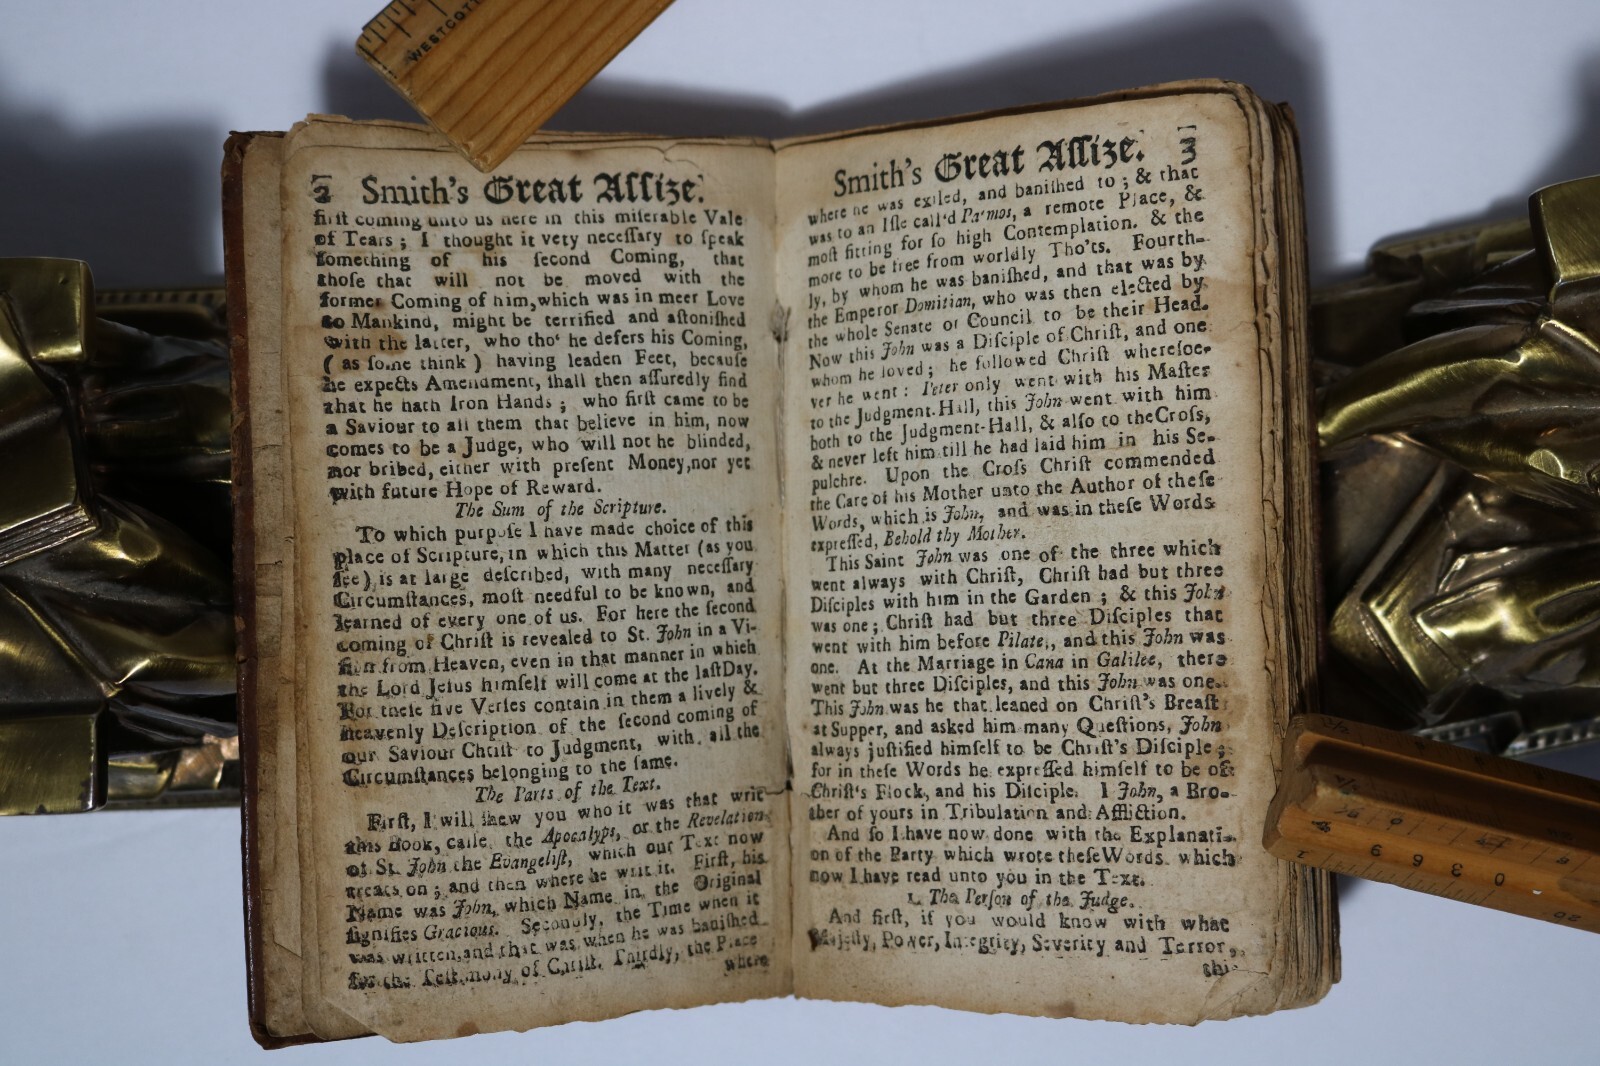 WESTCOTT
2 Smith's Great Aſſize.
firſt coming unto us here in this miſerable Vale
of Tears ; I thought it very neceſſary to ſpeak
ſomething of his ſecond Coming, that
thoſe that will not be moved with the
former Coming of him, which was in meer Love
to Mankind, might be terrified and aſtoniſhed
with the latter, who tho' he defers his Coming,
( as ſome think ) having leaden Feet, becauſe
he expects Amendment, ſhall then aſſuredly find
that he hath Iron Hands ; who firſt came to be
a Saviour to all them that believe in him, now
comes to be a Judge, who will not he blinded,
nor bribed, either with preſent Money, nor yet
with future Hope of Reward.
The Sum of the Scripture.
To which purpoſe I have made choice of this
place of Scripture, in which this Matter (as you
ſee) is at large deſcribed, with many neceſſary
Circumſtances, moſt needful to be known, and
learned of every one of us. For here the ſecond
coming of Chriſt is revealed to St. John in a Vi-
ſion from Heaven, even in that manner in which
the Lord Jeſus himſelf will come at the laſt Day.
For theſe five Verſes contain in them a lively &
heavenly Deſcription of the ſecond coming of
our Saviour Chriſt to Judgment, with all the
Circumſtances belonging to the ſame.
The Parts of the Text.
Firſt, I will ſhew you who it was that writ
this Book, calle the Apocalyps, or the Revelation
of St. John the Evangeliſt, which our Text now
treats on ; and then where he writ it. Firſt, his
Name was John, which Name in the Original
ſignifies Gracious. Secondly, the Time when it
was written, and that was when he was baniſhed
for the Teſtimony of Chriſt. Thirdly, the Place
where
Smith's Great Aſſize. 3
where he was exiled, and baniſhed to ; & that
was to an Iſle call'd Patmos, a remote Place, &
moſt fitting for ſo high Contemplation. & the
more to be free from worldly Tho'ts. Fourth-
ly, by whom he was baniſhed, and that was by
the Emperor Domitian, who was then elected by
the whole Senate or Council to be their Head.
Now this John was a Diſciple of Chriſt, and one
whom he loved ; he followed Chriſt whereſoe-
ver he went : Peter only went with his Maſter
to the Judgment-Hall, this John went with him
both to the Judgment-Hall, & alſo to the Croſs,
& never left him till he had laid him in his Se-
pulchre. Upon the Croſs Chriſt commended
the Care of his Mother unto the Author of theſe
Words, which is John, and was in theſe Words
expreſſed, Behold thy Mother.
This Saint John was one of the three which
went always with Chriſt, Chriſt had but three
Diſciples with him in the Garden ; & this John
was one ; Chriſt had but three Diſciples that
went with him before Pilate, and this John was
one. At the Marriage in Cana in Galilee, there
went but three Diſciples, and this John was one.
This John was he that leaned on Chriſt's Breaſt
at Supper, and asked him many Queſtions, John
always juſtified himſelf to be Chriſt's Diſciple ;
for in theſe Words he expreſſed himſelf to be of
Chriſt's Flock, and his Diſciple. I John, a Bro-
ther of yours in Tribulation and Affliction.
And ſo I have now done with the Explanati-
on of the Party which wrote theſe Words which
now I have read unto you in the Text.
1. The Perſon of the Judge.
And firſt, if you would know with what
Majeſty, Power, Integrity, Severity and Terror,
this
0 3 6 9